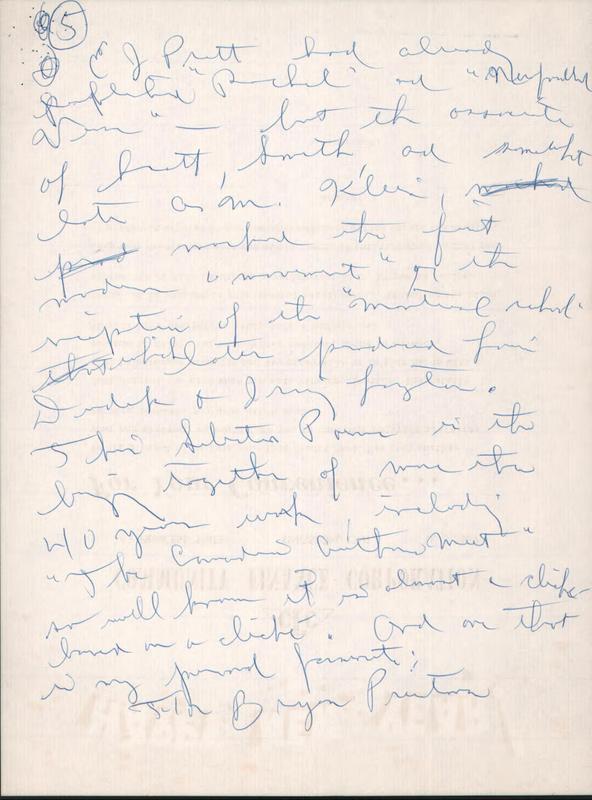 5
E J Pratt had already
published "Rachel" and "Newfoundland
Verse" — but the
of Scott, Smith and somewhat
later A.M. Klein,
marked the first
modern "movement" of the
inception of the "Montreal school"
which later produced Louis
Dudek & Irving Layton.
This Selected Poems is the
bringing together of more than
40 years work, including
"The Canadian Authors Meet"
so well known it is almost a cliche
based on a cliche. And one that
is my personal favourite:
To Bryan Priestman